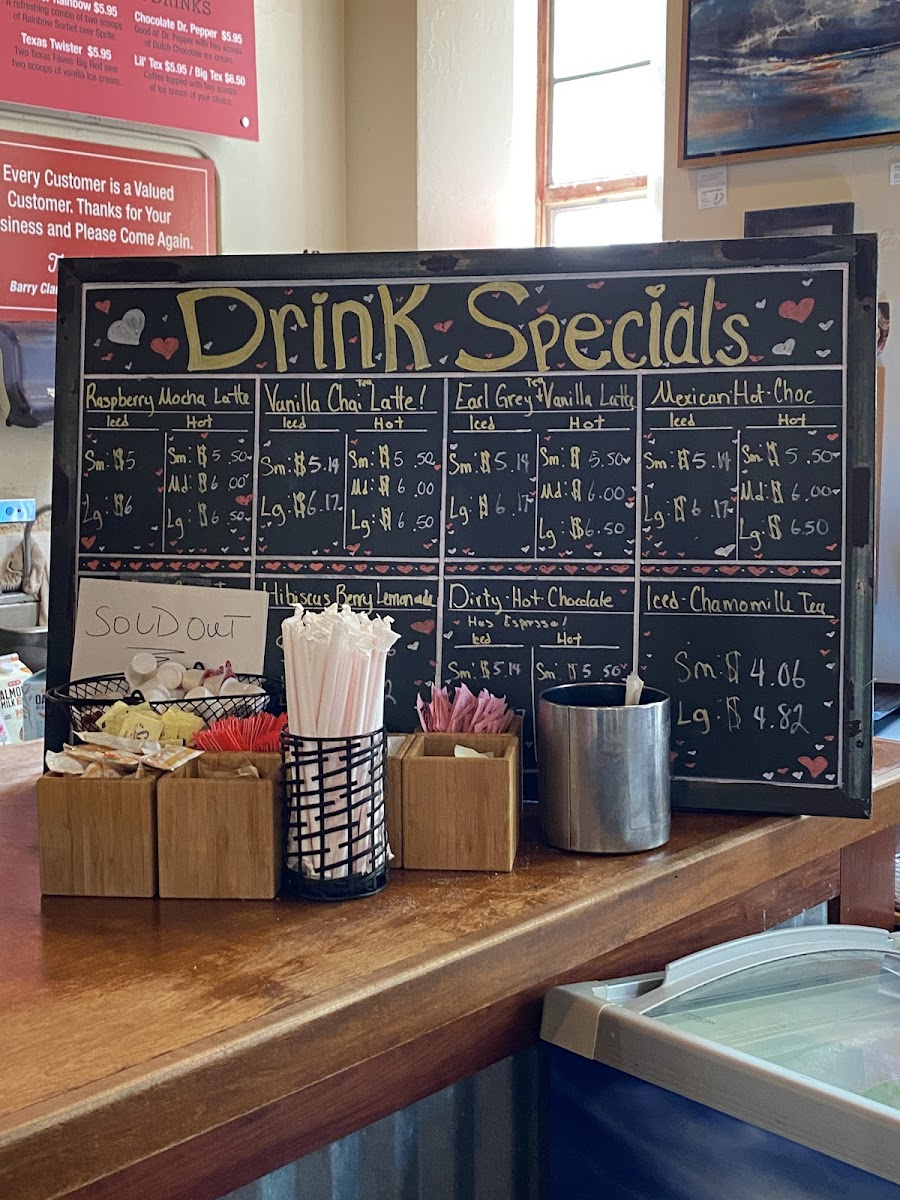 Rainbow $5.95
A refreshing combo of two scoops
of Rainbow Sorbet over Sprite.
Texas Twister $5.95
Two Texas Faves: Big Red over
two scoops of vanilla ice cream.
DRINKS
Chocolate Dr. Pepper $5.95
Good ol' Dr. Pepper with two scoops
of Dutch Chocolate ice cream.
Lil' Tex $5.95 / Big Tex $6.50
Coffee topped with two scoops
of ice cream of your choice.
Every Customer is a Valued
Customer. Thanks for Your
siness and Please Come Again.
Barry Cla
Drink Specials
Raspberry Mocha Latte
Iced Hot
Sm: $5
Lg: $6
Sm: $5.50
Md: $6.00
Lg: $6.50
Vanilla Chai Tea Latte!
Iced Hot
Sm: $5.14
Lg: $6.17
Sm: $5.50
Md: $6.00
Lg: $6.50
Earl Grey Tea + Vanilla Latte
Iced Hot
Sm: $5.14
Lg: $6.17
Sm: $5.50
Md: $6.00
Lg: $6.50
Mexican Hot Choc
Iced Hot
Sm: $5.14
Lg: $6.17
Sm: $5.50
Md: $6.00
Lg: $6.50
SOLD OUT
Hibiscus Berry Lemonade
Dirty Hot Chocolate
Has Espresso!
Iced Hot
Sm: $5.14
Sm: $5.50
Iced Chamomille Tea
Sm: $4.06
Lg: $4.82
ALMO
OA